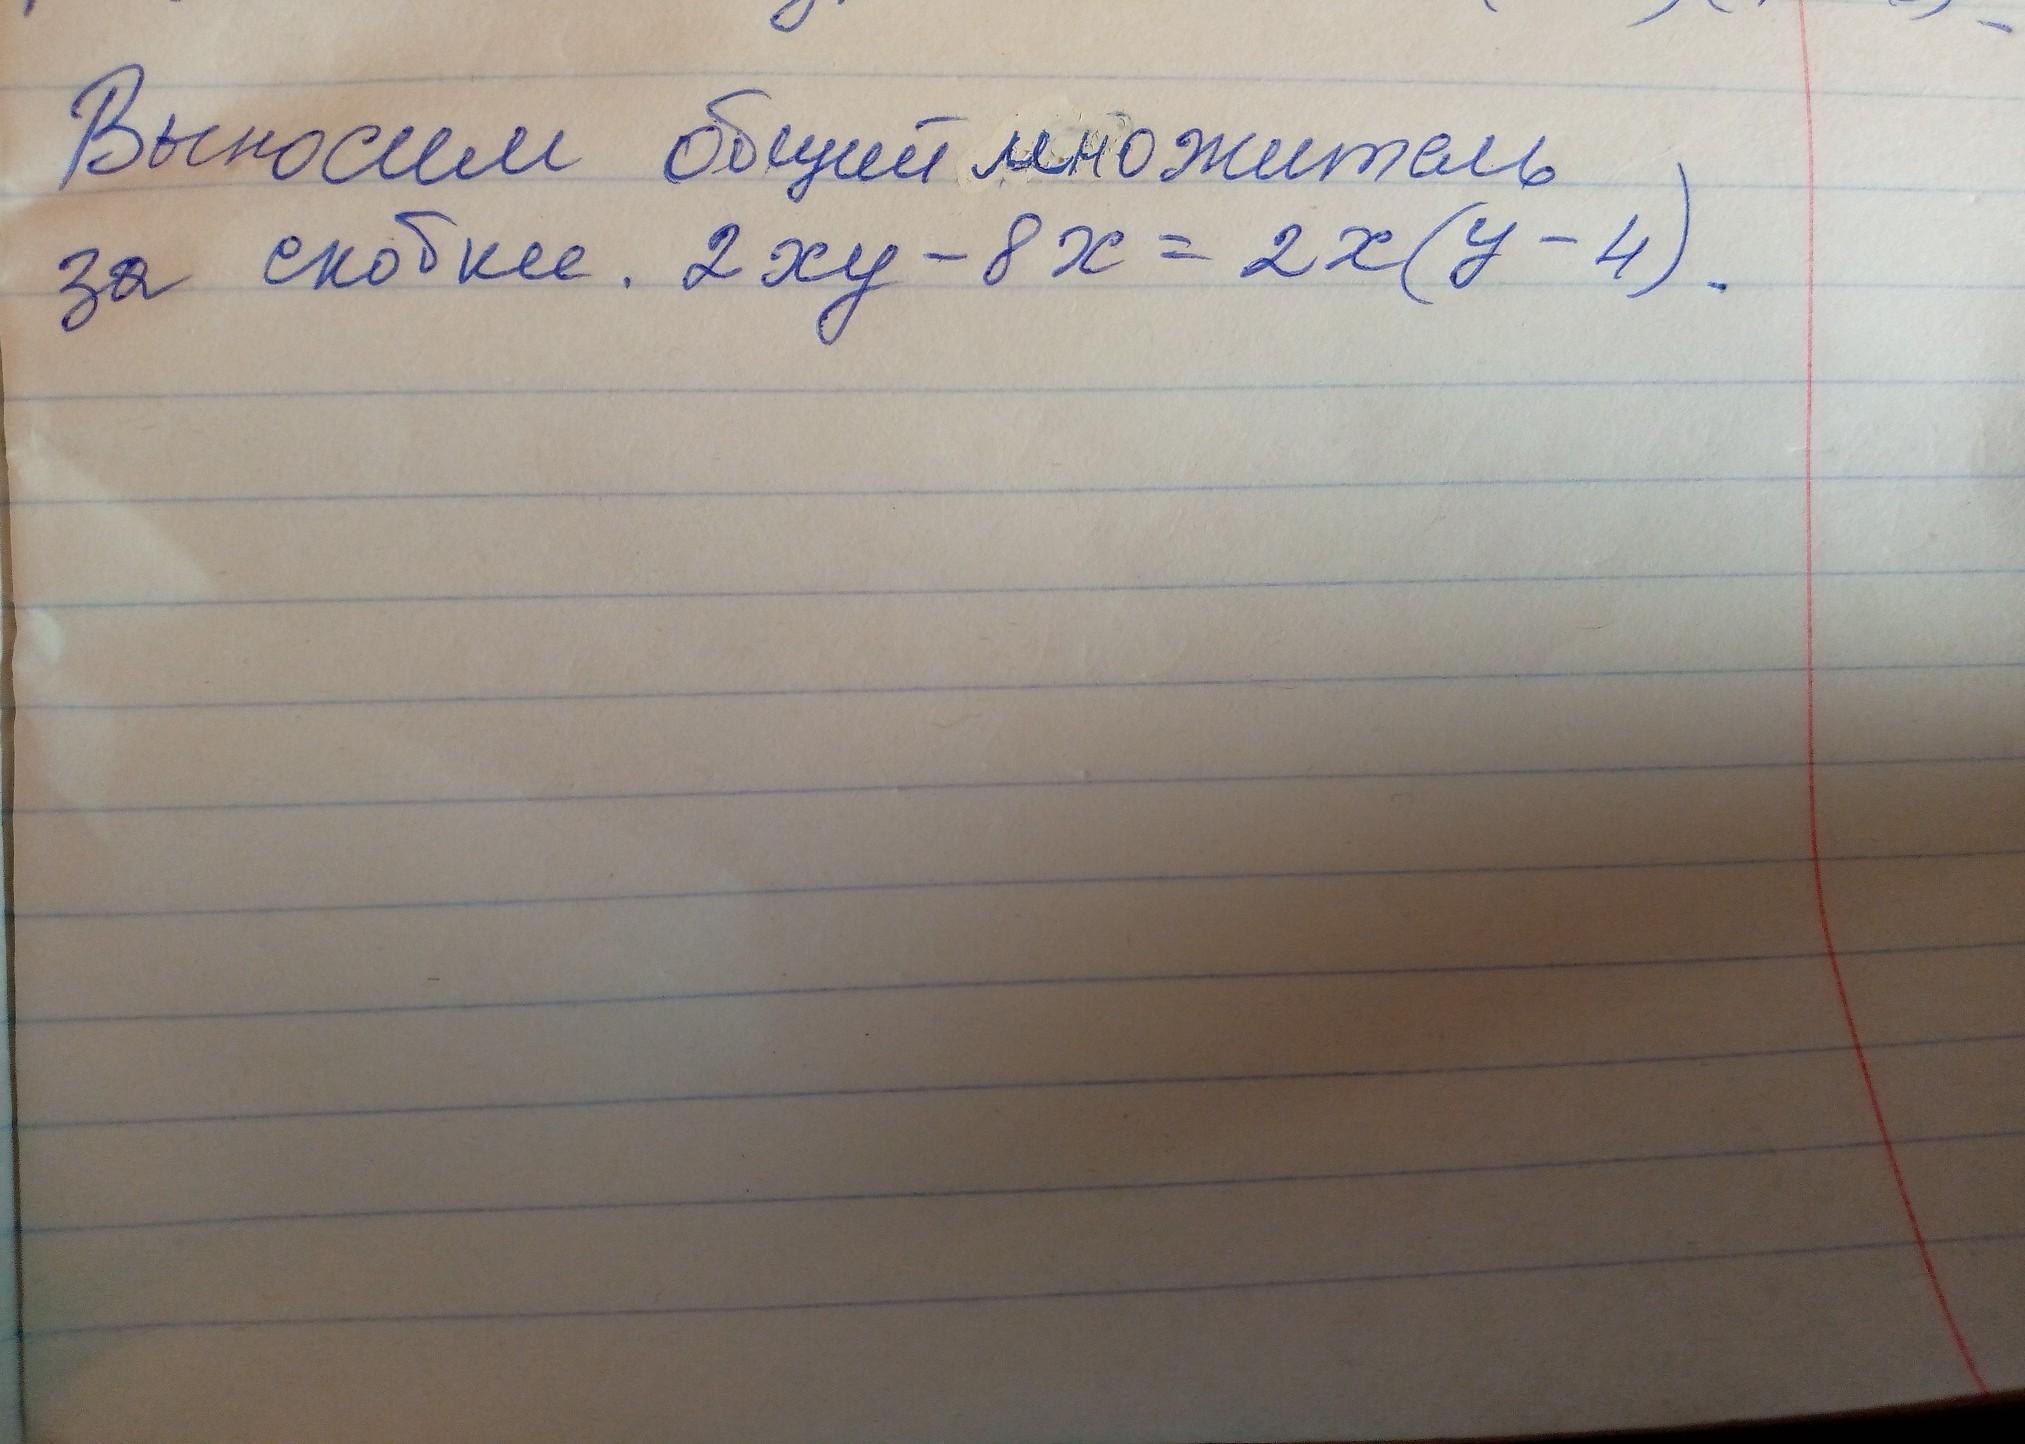 Выносим общий множитель
за скобки. 2xy - 8x = 2x(y - 4).